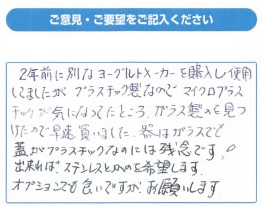 ご意見・ご要望をご記入ください
2年前に別なヨーグルトメーカーを購入し使用
してましたがプラスチック製なのでマイクロプラス
チックが気になってたところ、ガラス製のを見つ
けたので早速買いました。器はガラスでも
蓋がプラスチックなのには残念です。
出来れば、ステンレスとかのを希望します。
オプションでも良いですがお願いします。